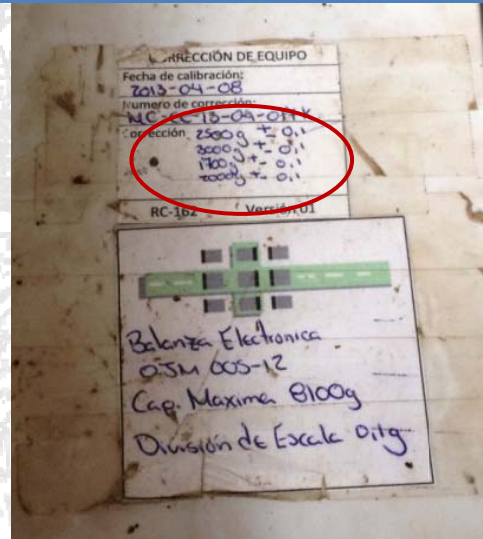 CORRECCIÓN DE EQUIPO
Fecha de calibración:
2013-04-08
Numero de corrección:
Corrección 2500g +- 0,1
3000g +- 0,1
1700g +- 0,1
2000g +- 0,1
RC-162 Versión 01
Balanza Electronica
OJM 005-12
Cap. Maxima 8100g
División de Escala 0,1g